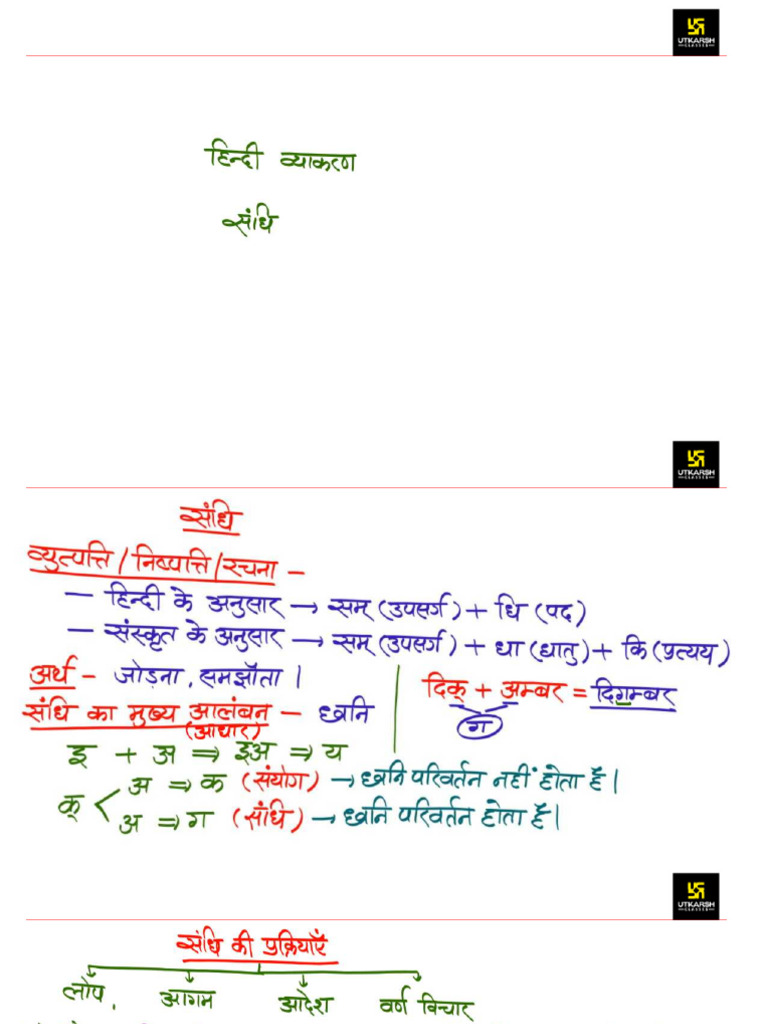 UTKARSH
CLASSES
हिन्दी व्याकरण
संधि
UTKARSH
CLASSES
संधि
व्युत्पत्ति/निष्पत्ति/रचना –
– हिन्दी के अनुसार → सम् (उपसर्ग) + धि (पद)
– संस्कृत के अनुसार → सम् (उपसर्ग) + धा (धातु) + कि (प्रत्यय)
अर्थ – जोड़ना, समझौता।
दिक् + अम्बर = दिगम्बर
ग
संधि का मुख्य आलंबन – ध्वनि
(आधार)
इ + अ ⇒ इअ ⇒ य
क् < अ ⇒ क (संयोग) → ध्वनि परिवर्तन नहीं होता है।
अ ⇒ ग (संधि) → ध्वनि परिवर्तन होता है।
UTKARSH
CLASSES
संधि की प्रक्रियाएँ
लोप, आगम आदेश वर्ण विचार